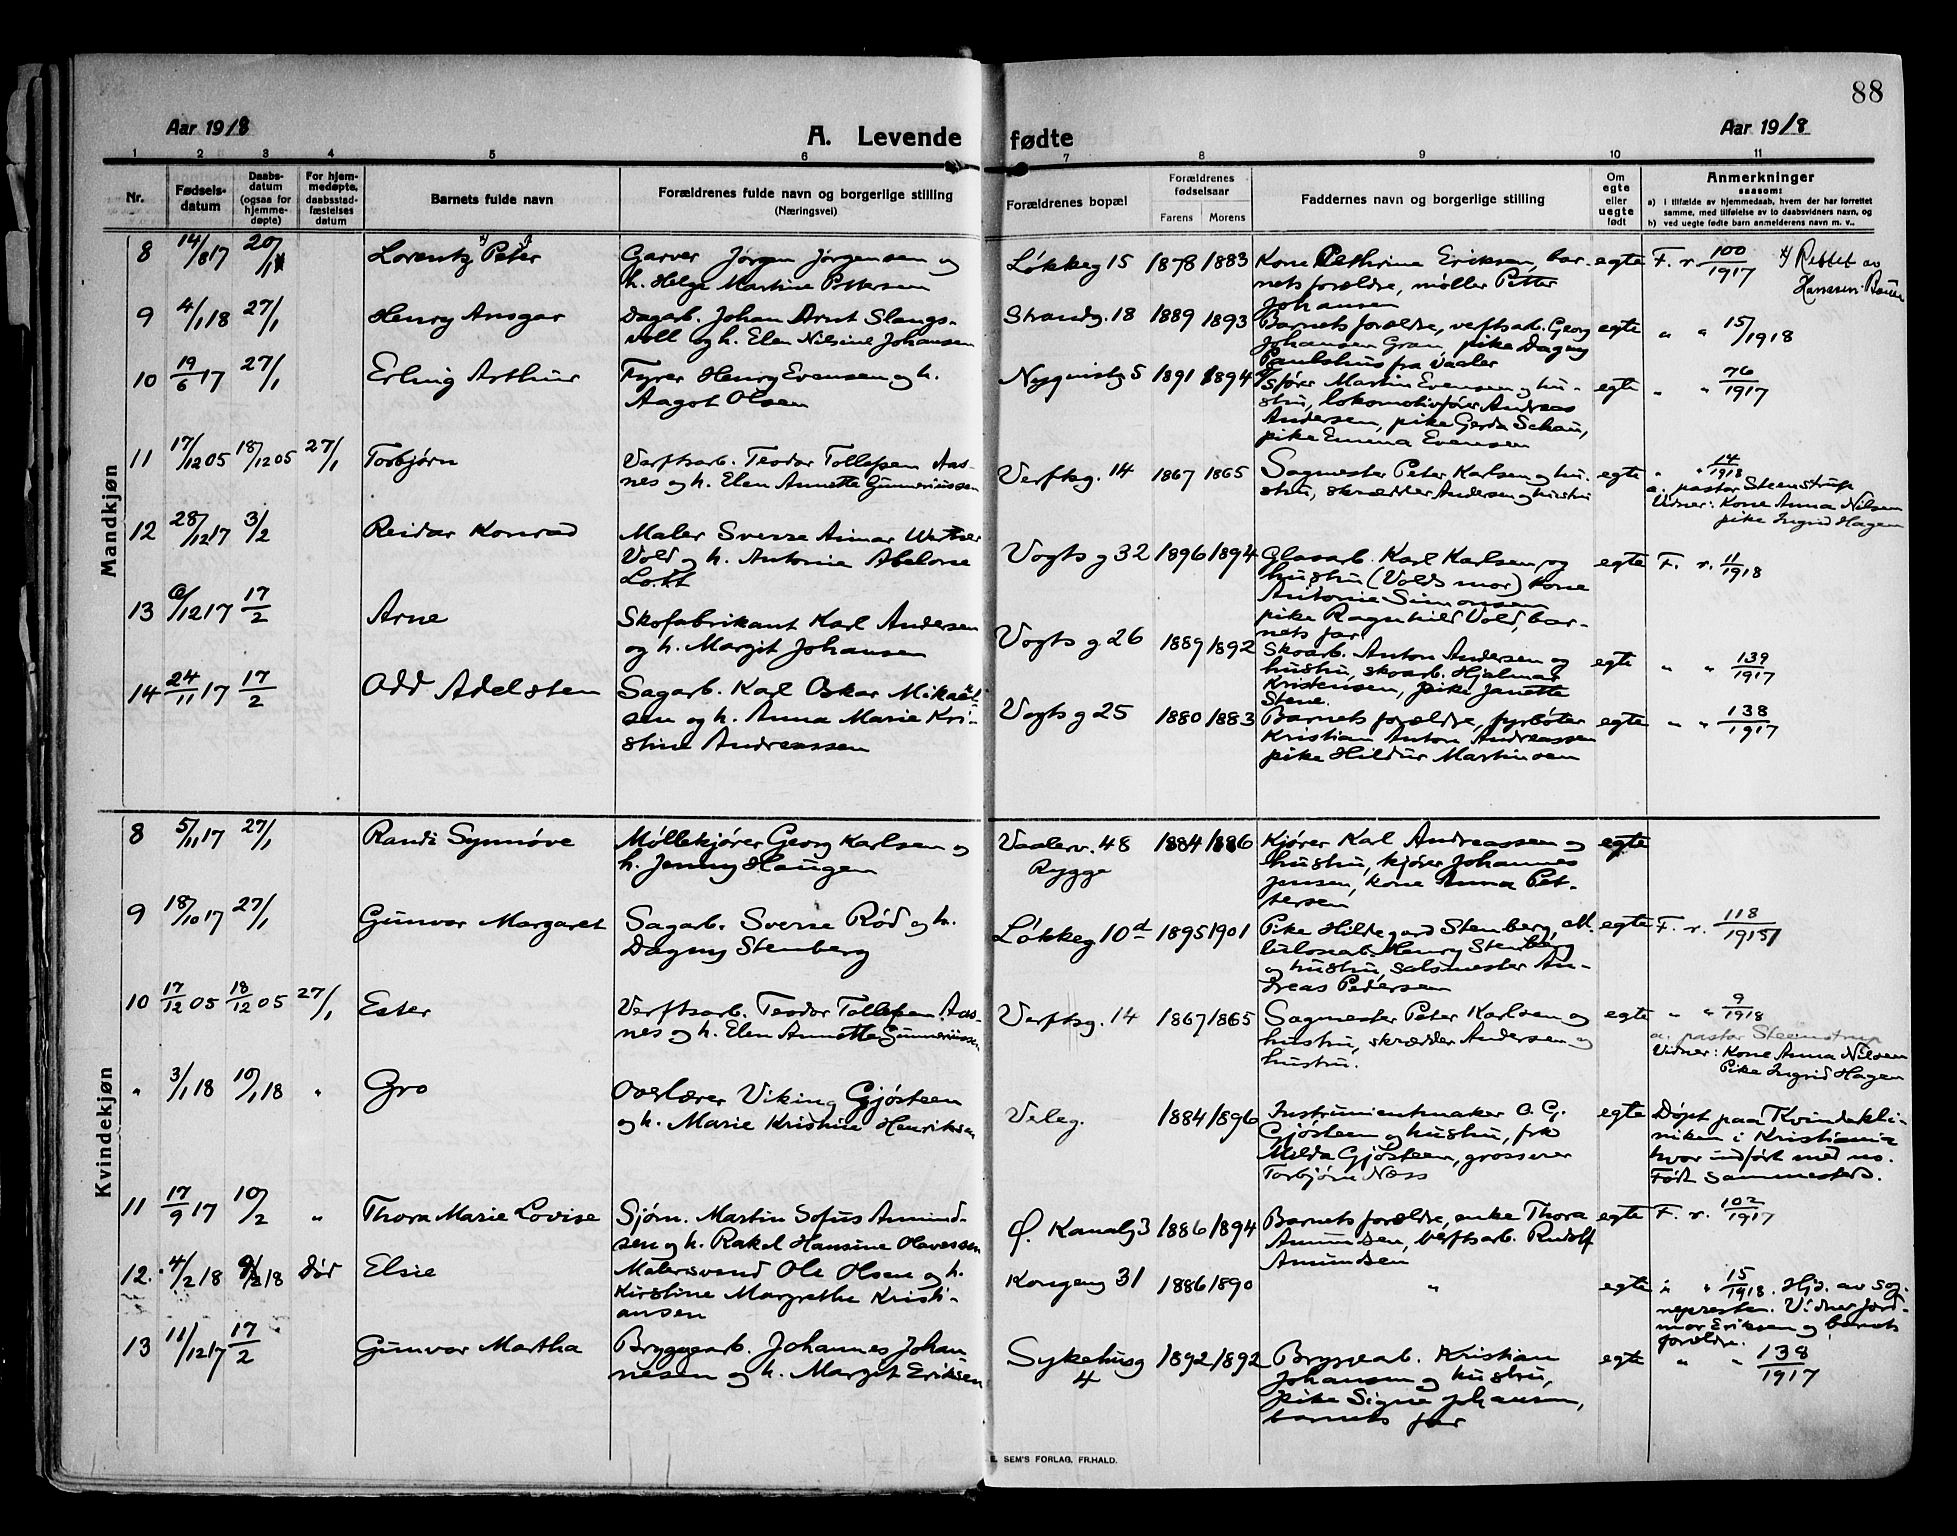 88
Aar 1918
A. Levende fødte
Aar 1918
1 2 3 4 5 6 7 8 9 10 11
Nr.
Fødsels-
datum
Daabs-
datum
(ogsaa for
hjemme-
døpte)
For hjem-
medøpte,
daabsstad-
fæstelses
datum
Barnets fulde navn
Forældrenes fulde navn og borgerlige stilling
(Næringsvei)
Forældrenes bopæl
Forældrenes
fødselsaar
Farens Morens
Faddernes navn og borgerlige stilling
Om
egte
eller
uegte
født
Anmerkninger
saasom:
a) i tilfælde av hjemmedaab, hvem der har forrettet
samme, med tilføielse av to daabsvidners navn, og
b) ved uegte fødte barn anmelderens navn m. v..
Mandkjøn
8 14/8 17 20/1 Lorentz Peter
Garver Jørgen Jørgensen og
h. Helga Martine Pettersen
Løkkeg 15 1878 1883
Kone Pethrine Eriksen, bar-
nets forældre, møller Petter
Johansen
egte F. r. 100/1917
Rettet av
Hanssen-Bauer
9 4/1 18 27/1 Henry Ansgar
Dagarb. Johan Arnt Slangs-
voll og h. Elen Nilsine Johansen
Strandg. 18 1889 1893
Barnets forældre, verftsarb. Georg
Johansen Gran, pike Dagny
Paulshus fra Vaaler
egte " " 15/1918
10 19/6 17 27/1 Erling Arthur
Fyrer Henry Evensen og h.
Aagot Olsen
Nyquistg 5 1891 1894
Sjøfører Martin Evensen og hu-
stru, lokomotivfører Andreas
Andersen, pike Gerda Schau,
pike Emma Evensen
egte " " 76/1917
11 17/12 05 18/12 05 27/1 Torbjørn
Verftsarb. Teodor Tollefsen Aas-
nes og h. Elen Annette Gunneriussen
Verftsg. 14 1867 1865
Sagmester Peter Karlsen og hu-
stru, skrædder Andersen og hustru
egte " " 14/1918
a. pastor Steenstrup
Vidner: Kone Anna Nilsen
pike Ingrid Hagen
12 28/12 17 3/2 Reidar Konrad
Maler Sverre Aimar Werner
Vold og h. Antonie Abelone
Lokt
Vogts g 32 1896 1894
Glasarb. Karl Karlsen og
hustru (Volds mor) Kone
Antonie Simonsen
pike Ragnhild Vold, bar-
nets far
egte F. r. 11/1918
13 6/12 17 17/2 Arne
Skofabrikant Karl Andersen
og h. Margit Johansen
Vogts g 26 1889 1892
Skoarb. Anton Andersen og
hustru, skoarb. Hjalmar
Kristensen, pike Janette
Stene.
egte " " 139/1917
14 24/11 17 17/2 Odd Adelsten
Sagarb. Karl Oskar Mikael-
sen og h. Anna Marie Kri-
stine Andreassen
Vogts g 25 1880 1883
Barnets forældre, fyrbøter
Kristian Anton Andreassen
pike Hildur Martinsen
egte " " 138/1917
Kvindekjøn
8 5/11 17 27/1 Randi Synnøve
Møllekjører Georg Karlsen og
h. Jenny Haugen
Vaalerv. 48
Rygge
1884 1886
Kjører Karl Andreassen og
hustru, kjører Johannes
Jensen, kone Anna Pet-
tersen
egte
9 18/10 17 27/1 Gunvor Margaret
Sagarb. Sverre Rød og h.
Dagny Stenberg
Løkkeg 10d 1895 1901
Pike Hildegard Stenberg, cel-
lulosearb. Henry Stenberg
og hustru, salsmester An-
dreas Pedersen
egte F. r. 118/1917
10 17/12 05 18/12 05 27/1 Ester
Verftsarb. Teodor Tollefsen Aas-
nes og h. Elen Annette Gunneriussen
Verftsg. 14 1867 1865
Sagmester Peter Karlsen og
hustru, skrædder Andersen og
hustru.
egte " " 9/1918
a. pastor Steenstrup
Vidner: Kone Anna Nilsen
Pike Ingrid Hagen
" 3/1 18 10/1 18 " Gro
Overlærer Viking Gjøsteen
og h. Marie Kristine Henriksen
Veleg. 1884 1896
Instrumentmaker O. G.
Gjøsteen og hustru, frk
Milda Gjøsteen, grosserer
Torbjørn Næss
egte
Døpt paa Kvindekli-
niken i Kristiania
hvor indført med no.
Født sammesteds.
11 17/9 17 10/2 " Thora Marie Lovise
Sjøm. Martin Sofus Amund-
sen og h. Rakel Hansine Olavessen
Ø. Kanalg 3 1886 1894
Barnets forældre, enke Thora
Amundsen, verftsarb. Rudolf
Amundsen
egte F. r. 102/1917
12. 4/2 18 9/2 18 Død Elsie
Malersvend Ole Olsen og h.
Kirstine Margrethe Kristi-
ansen
Kongeng 31 1886 1890
"
egte " " 15/1918. Hjd. av sog-
nepresten. Vidner jord-
mor Eriksen og barnets
forældre.
13 11/12 17 17/2 Gunvor Martha
Bryggearb. Johannes Johan-
nesen og h. Margit Eriksen
Sykehusg
4
1892 1892
Bryggearb. Kristian
Johansen og hustru,
pike Signe Johansen,
barnets far
egte " " 138/1917
E. SEM'S FORLAG, FR.HALD.